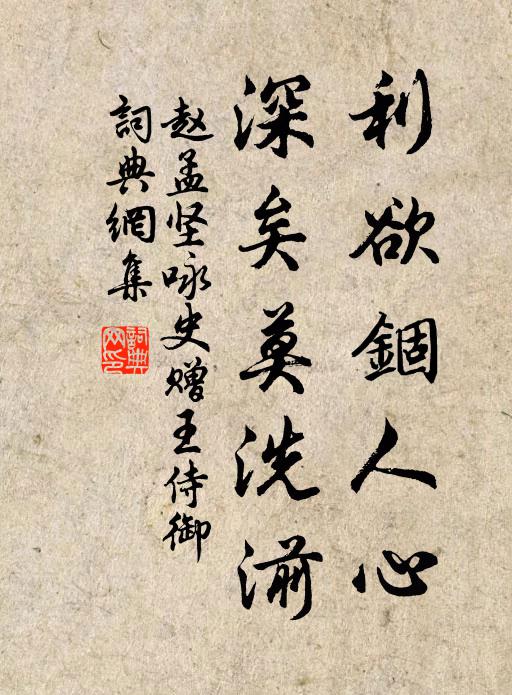 利欲錮人心
深矣莫洗湔
赵孟坚咏史赠王侍御
詞典網集
詞典
网印